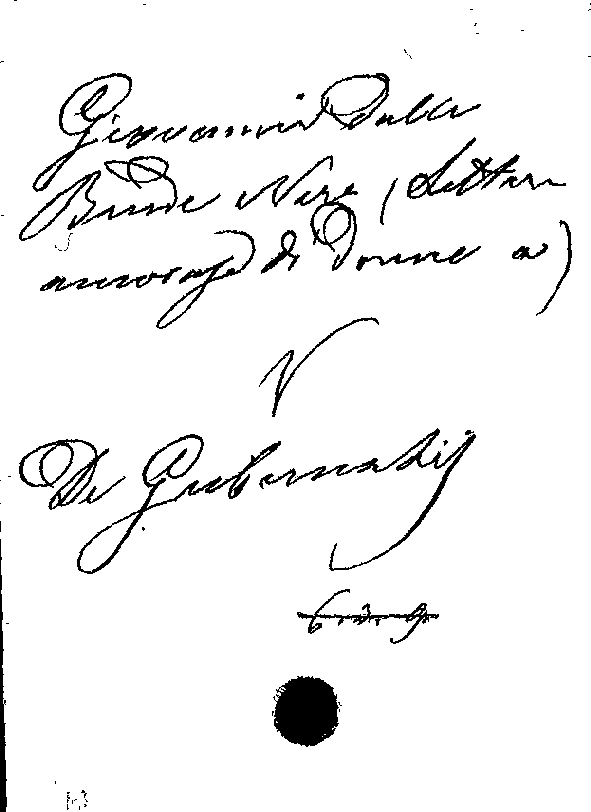 Giovanni Dalle
Bande Nere (Lettere
amorose di Donne a)
V
De Gubernatis
6.3.9.